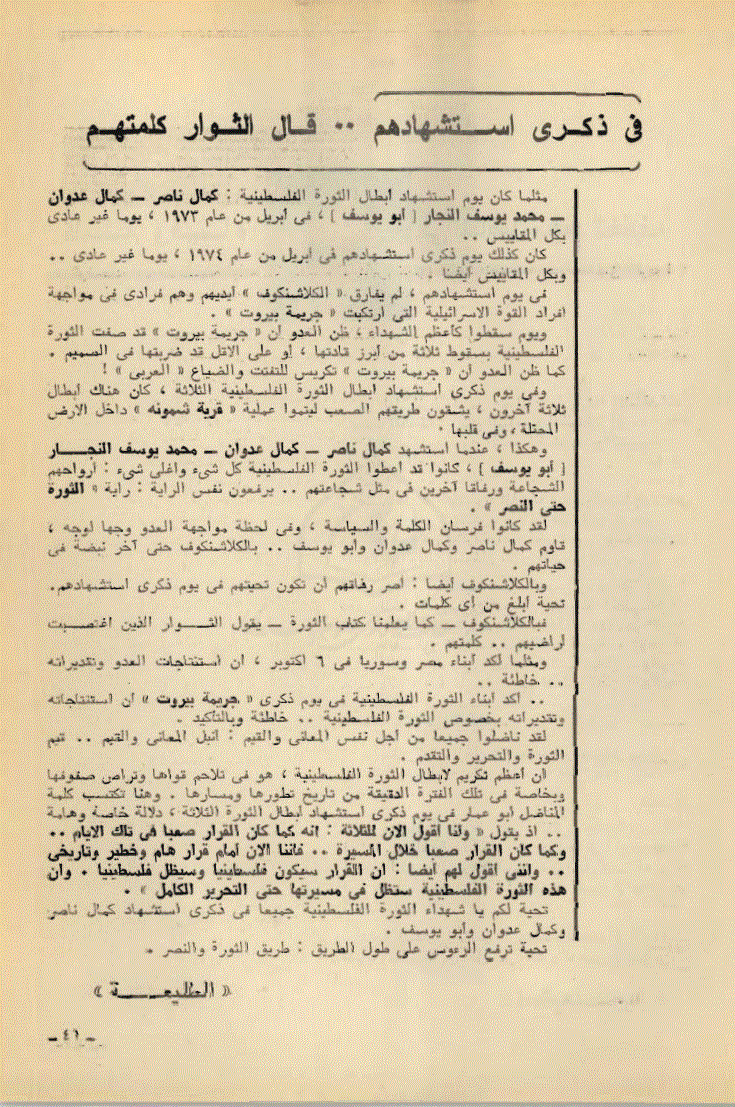 فى ذكرى استشهادهم .. قال الثوار كلمتهم
مثلما كان يوم استشهاد أبطال الثورة الفلسطينية : كمال ناصر — كمال عدوان
— محمد يوسف النجار [ أبو يوسف ] ، فى أبريل من عام ١٩٧٣ ، يوما غير عادى
بكل المقاييس ..
كان كذلك يوم ذكرى استشهادهم فى أبريل من عام ١٩٧٤ ، يوما غير عادى ..
وبكل المقاييس أيضا .
فى يوم استشهادهم ، لم يفارق « الكلاشنكوف » أيديهم وهم فرادى فى مواجهة
افراد القوة الاسرائيلية التى ارتكبت « جريمة بيروت » .
ويوم سقطوا كأعظم الشهداء ، ظن العدو ان « جريمة بيروت » قد صفت الثورة
الفلسطينية بسقوط ثلاثة من أبرز قادتها ، أو على الاقل قد ضربتها فى الصميم .
كما ظن العدو ان « جريمة بيروت » تكريس للتفتت والضياع « العربى » !
وفى يوم ذكرى استشهاد أبطال الثورة الفلسطينية الثلاثة ، كان هناك أبطال
ثلاثة آخرون ، يشقون طريقهم الصعب ليتموا عملية « قرية شمونه » داخل الارض
المحتلة ، وفى قلبها .
وهكذا ، عندما استشهد كمال ناصر — كمال عدوان — محمد يوسف النجـــار
[ أبو يوسف ] ، كانوا قد أعطوا الثورة الفلسطينية كل شىء وأغلى شىء : أرواحهم
الشجاعة ورفاقا آخرين فى مثل شجاعتهم .. يرفعون نفس الراية : راية « الثورة
حتى النصر » .
لقد كانوا فرسان الكلمة والسياسة ، وفى لحظة مواجهة العدو وجها لوجه ،
قاوم كمال ناصر وكمال عدوان وأبو يوسف .. بالكلاشنكوف حتى آخر نبضة فى
حياتهم .
وبالكلاشنكوف أيضا : أصر رفاقهم أن تكون تحيتهم فى يوم ذكرى استشهادهم.
تحية أبلغ من أى كلمات .
فبالكلاشنكوف — كما يعلمنا كتاب الثورة — يقول الثـــوار الذين اغتصبت
اراضيهم .. كلمتهم .
ومثلما أكد أبناء مصر وسوريا فى ٦ اكتوبر ، ان استنتاجات العدو وتقديراته
.. خاطئة ..
.. أكد أبناء الثورة الفلسطينية فى يوم ذكرى « جريمة بيروت » ان استنتاجاته
وتقديراته بخصوص الثورة الفلسطينية .. خاطئة وبالتأكيد .
لقد ناضلوا جميعا من أجل نفس المعانى والقيم : أنبل المعانى والقيم .. قيم
الثورة والتحرير والتقدم .
ان أعظم تكريم لابطال الثورة الفلسطينية ، هو فى تلاحم قواها وتراص صفوفها
وبخاصة فى تلك الفترة الدقيقة من تاريخ تطورها ومسارها . وهنا تكتسب كلمة
المناضل أبو عمار فى يوم ذكرى استشهاد أبطال الثورة الثلاثة ، دلالة خاصة وهامة
.. اذ يقول « وأنا اقول الان للثلاثة : انه كما كان القرار صعبا فى تلك الايام ..
وكما كان القرار صعبا خلال المسيرة .. فاننا الان امام قرار هام وخطير وتاريخى
.. واننى اقول لهم أيضا : ان القرار سيكون فلسطينيا وسيظل فلسطينيا . وان
هذه الثورة الفلسطينية ستظل فى مسيرتها حتى التحرير الكامل » .
تحية لكم يا شهداء الثورة الفلسطينية جميعا فى ذكرى استشهاد كمال ناصر
وكمال عدوان وأبو يوسف .
تحية ترفع الرءوس على طول الطريق : طريق الثورة والنصر .
« الطليعـــة »
— ٤٦ —